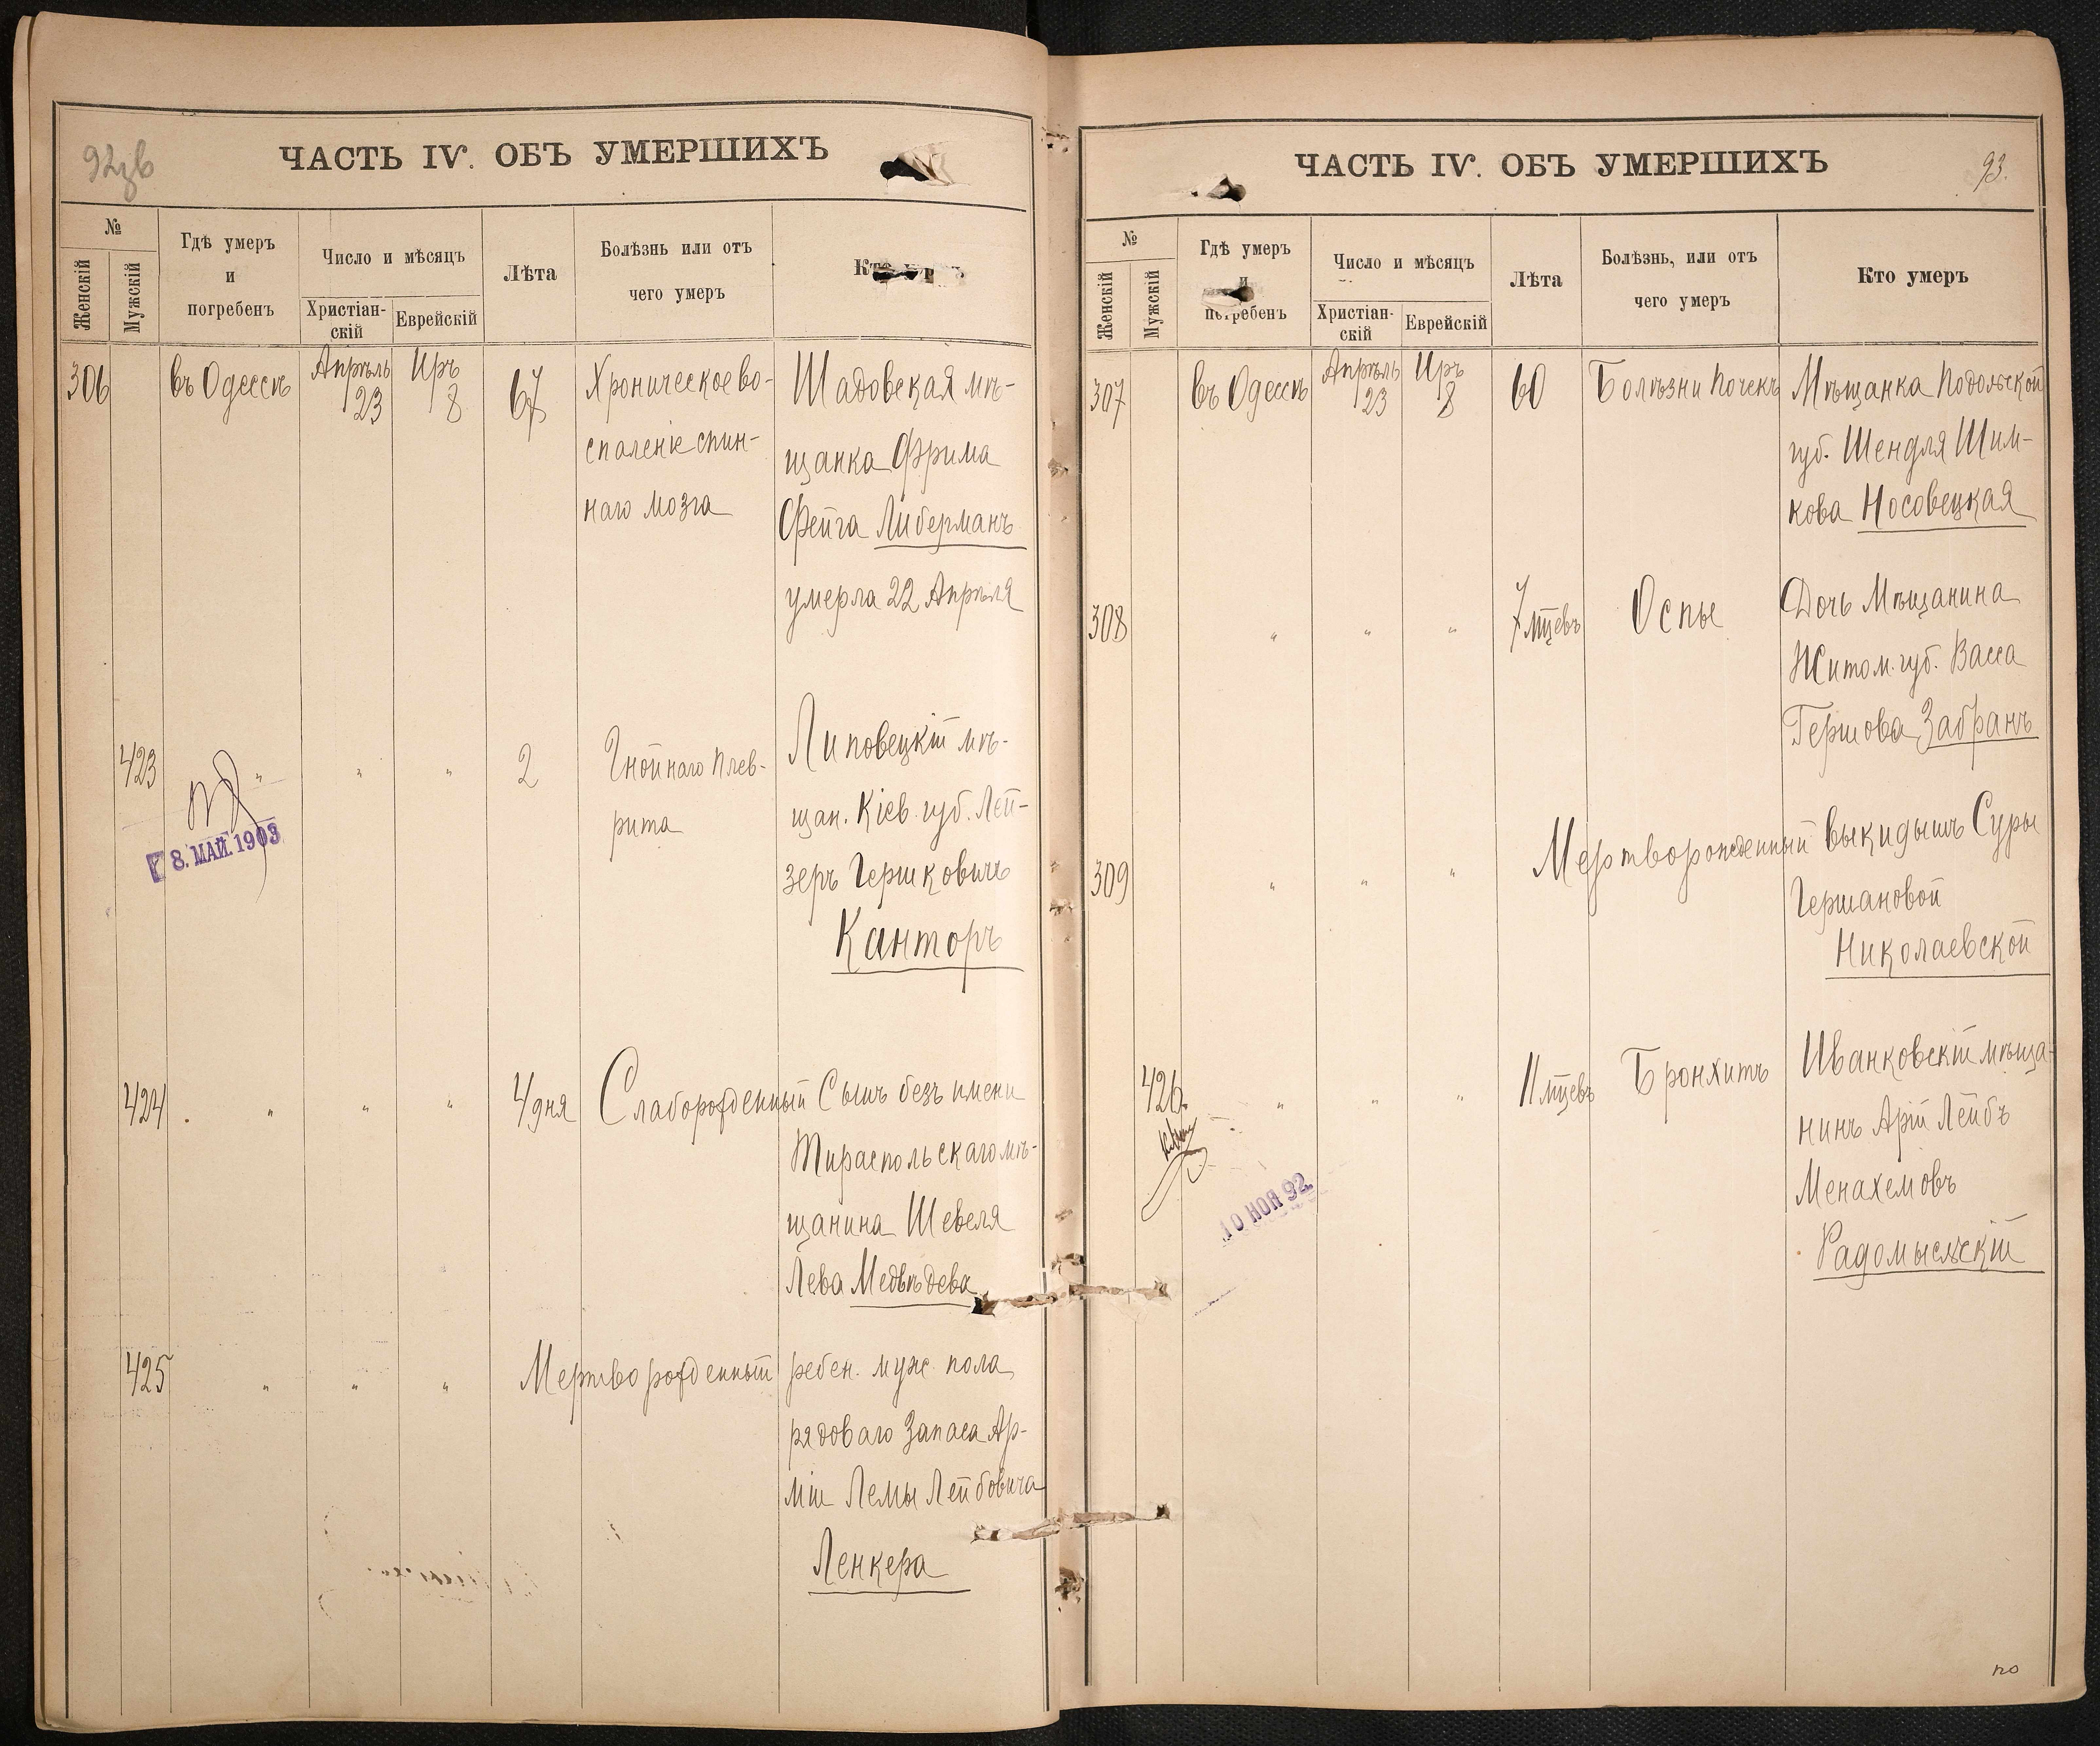 92зв
ЧАСТЬ IV. ОБЪ УМЕРШИХЪ
№
Женскій
Мужскій
Гдѣ умеръ
и
погребенъ
Число и мѣсяцъ
Христіан-
скій
Еврейскій
Лѣта
Болѣзнь или отъ
чего умеръ
306
въ Одессѣ
Апрѣль
23
Иръ
8
67
Хроническое во-
спаленіе спин-
наго мозга
Шадовская мѣ-
щанка Фрима
Фейга Либерманъ
умерла 22 Апрѣля
423
"
"
"
2
Гнойнаго плев-
рита
Липовецкій мѣ-
щан. Кіев. губ. Лей-
зеръ Гершковичъ
Канторъ
8. МАЙ. 1903
424
"
"
"
4 дня
Слаборожденный
Сынъ безъ имени
Тираспольскаго мѣ-
щанина Шевеля
Лева Медвѣдева
425
"
"
"
Мертворожденный
ребен. муж. пола
рядоваго Запаса Ар-
міи Лемы Лейбовича
Ленкера
ЧАСТЬ IV. ОБЪ УМЕРШИХЪ
93.
№
Женскій
Мужскій
Гдѣ умеръ
и
погребенъ
Число и мѣсяцъ
Христіан-
скій
Еврейскій
Лѣта
Болѣзнь, или отъ
чего умеръ
Кто умеръ
307
въ Одессѣ
Апрѣль
23
Иръ
8
60
Болѣзни почекъ
Мѣщанка Подольской
губ. Шендля Шим-
кова Носовецкая
308
"
"
"
7 мцевъ
Оспы
Дочь Мѣщанина
Житом. губ. Васса
Гершова Забранъ
309
"
"
"
Мертворожденный выкидышъ Суры
Гершановой
Николаевской
426.
"
"
"
11 мцевъ
Бронхитъ
Иванковскій мѣща-
нинъ Арій Лейбъ
Менахемовъ
Радомысльскій
10 НОЯ 92.